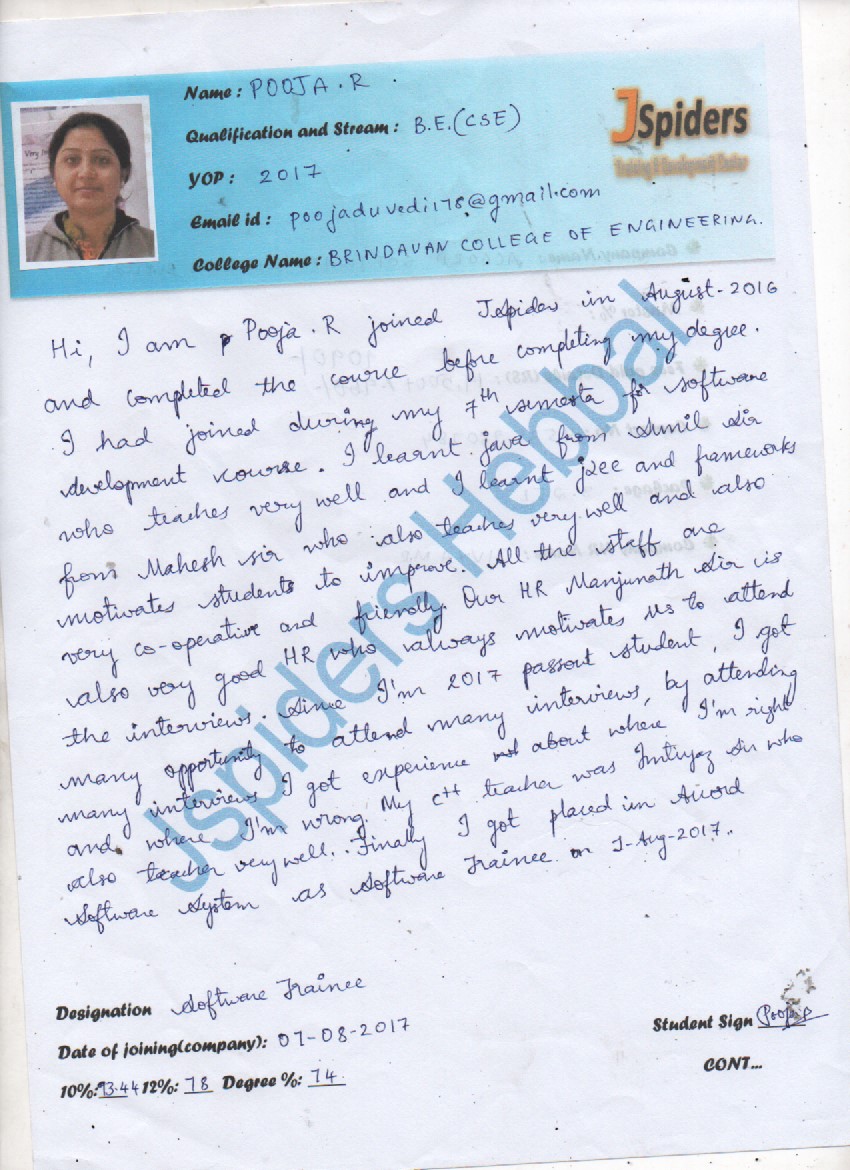 Name : POOJA . R
JSpiders
Training & Development Center
Qualification and Stream : B.E.(CSE)
YOP : 2017
Email id : poojaduvedi178@gmail.com
College Name : BRINDAVAN COLLEGE OF ENGINEERING.
Hi, I am Pooja . R joined Jspider in August-2016
and completed the course before completing my degree.
I had joined during my 7th semester for software
development course. I learnt java from Sunil sir
who teaches very well and I learnt j2ee and frameworks
from Mahesh sir who also teaches very well and also
motivates students to improve. All the staff are
very co-operative and friendly. Our HR Manjunath sir is
also very good HR who always motivates us to attend
the interviews. Since I'm 2017 passout student, I got
many opportunity to attend many interviews, by attending
many interviews I got experience about where I'm right
and where I'm wrong. My c++ teacher was Imtiyaz sir who
also teacher very well. Finally I got placed in Accord
Software System as Software Trainee on 7-Aug-2017.
Jspiders Hebbal
Designation Software Trainee
Date of joining(company): 07-08-2017
Student Sign Pooja R
10%: 93.44 12%: 78 Degree %: 74
CONT...